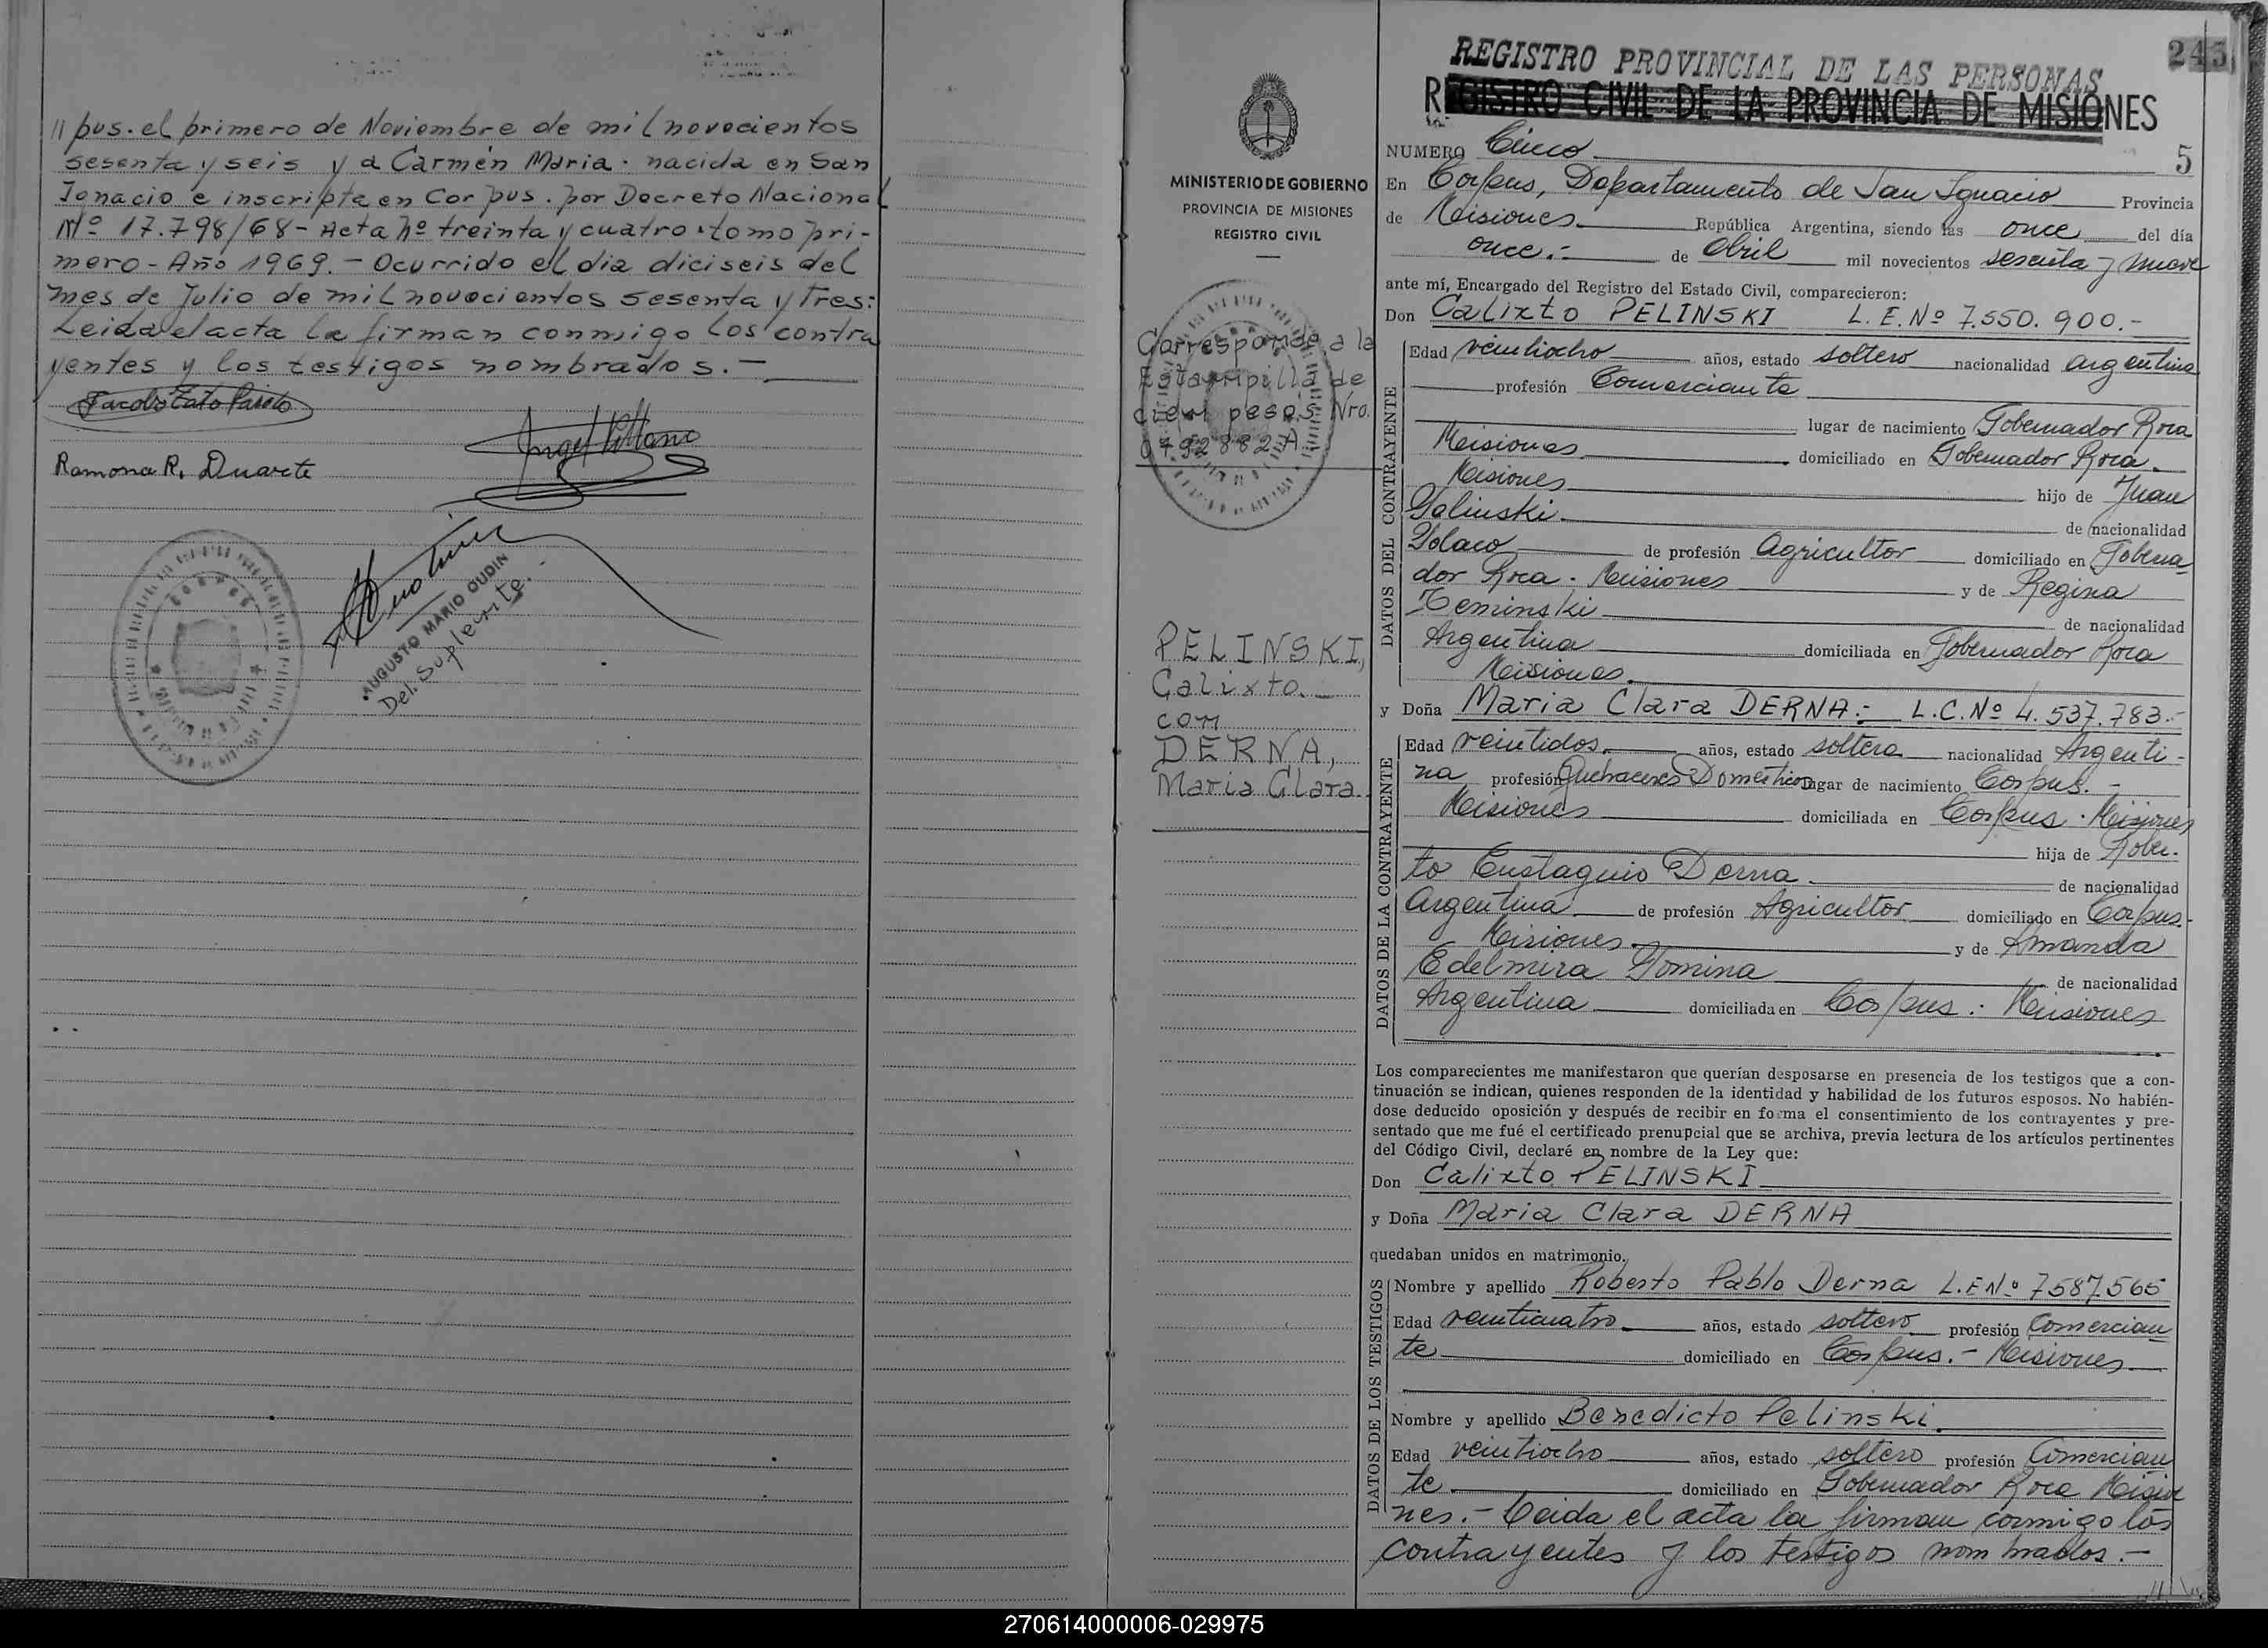 // pus. el primero de Noviembre de mil novecientos
sesenta y seis y a Carmén Maria. nacida en San
Ignacio e inscripta en Corpus. por Decreto Nacional
Nº 17.798/68 - Acta nº treinta y cuatro. tomo pri-
mero - Año 1969. - Ocurrido el dia diciseis del
mes de Julio de mil novecientos sesenta y tres:
Leida el acta la firman conmigo los contra
yentes y los testigos nombrados. -
Ramona R. Duarte
AUGUSTO MARIO OUDIN
Del. Suplente.
MINISTERIO DE GOBIERNO
PROVINCIA DE MISIONES
REGISTRO CIVIL
Corresponde a la
Estampilla de
cien pesos Nro.
0792882A
PELINSKI,
Calixto.
con
DERNA,
Maria Clara.
245
REGISTRO PROVINCIAL DE LAS PERSONAS
REGISTRO CIVIL DE LA PROVINCIA DE MISIONES
NUMERO Cinco 5
En Corpus, Departamento de San Ignacio Provincia
de Misiones República Argentina, siendo las once del día
once.- de Abril mil novecientos sesenta y nueve
ante mí, Encargado del Registro del Estado Civil, comparecieron:
Don Calixto PELINSKI L. E. Nº 7.550.900.-
DATOS DEL CONTRAYENTE
Edad veintiocho años, estado soltero nacionalidad argentina
profesión Comerciante
lugar de nacimiento Gobernador Roca
Misiones domiciliado en Gobernador Roca.
Misiones hijo de Juan
Palinski de nacionalidad
Polaco de profesión Agricultor domiciliado en Goberna
dor Roca. Misiones y de Regina
Zeminski de nacionalidad
Argentina domiciliada en Gobernador Roca
Misiones.
y Doña Maria Clara DERNA:- L.C. Nº 4.537.783.-
DATOS DE LA CONTRAYENTE
Edad veintidos. años, estado soltera nacionalidad Argenti-
na profesión Quehaceres Domésticos lugar de nacimiento Corpus. -
Misiones domiciliada en Corpus. Misiones
hija de Rober-
to Eustaquio Derna. de nacionalidad
Argentina de profesión Agricultor domiciliado en Corpus.
Misiones. y de Amanda
Edelmira Gomina de nacionalidad
Argentina domiciliada en Corpus. Misiones
Los comparecientes me manifestaron que querían desposarse en presencia de los testigos que a con-
tinuación se indican, quienes responden de la identidad y habilidad de los futuros esposos. No habién-
dose deducido oposición y después de recibir en forma el consentimiento de los contrayentes y pre-
sentado que me fué el certificado prenupcial que se archiva, previa lectura de los artículos pertinentes
del Código Civil, declaré en nombre de la Ley que:
Don Calixto PELINSKI
y Doña Maria Clara DERNA
quedaban unidos en matrimonio.
DATOS DE LOS TESTIGOS
Nombre y apellido Roberto Pablo Derna L.E Nº 7587.565
Edad veinticuatro años, estado soltero profesión Comercian
te domiciliado en Corpus. - Misiones
Nombre y apellido Benedicto Pelinski.
Edad veintiocho años, estado soltero profesión Comercian
te domiciliado en Gobernador Roca Misio
nes. - Leida el acta la firman conmigo los
contrayentes y los testigos nombrados. -
270614000006-029975